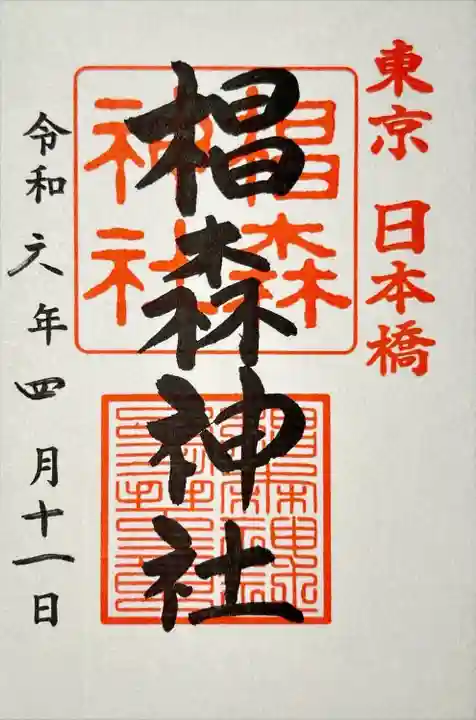 東京 日本橋
椙森神社
椙森
神社
令和六年四月十一日